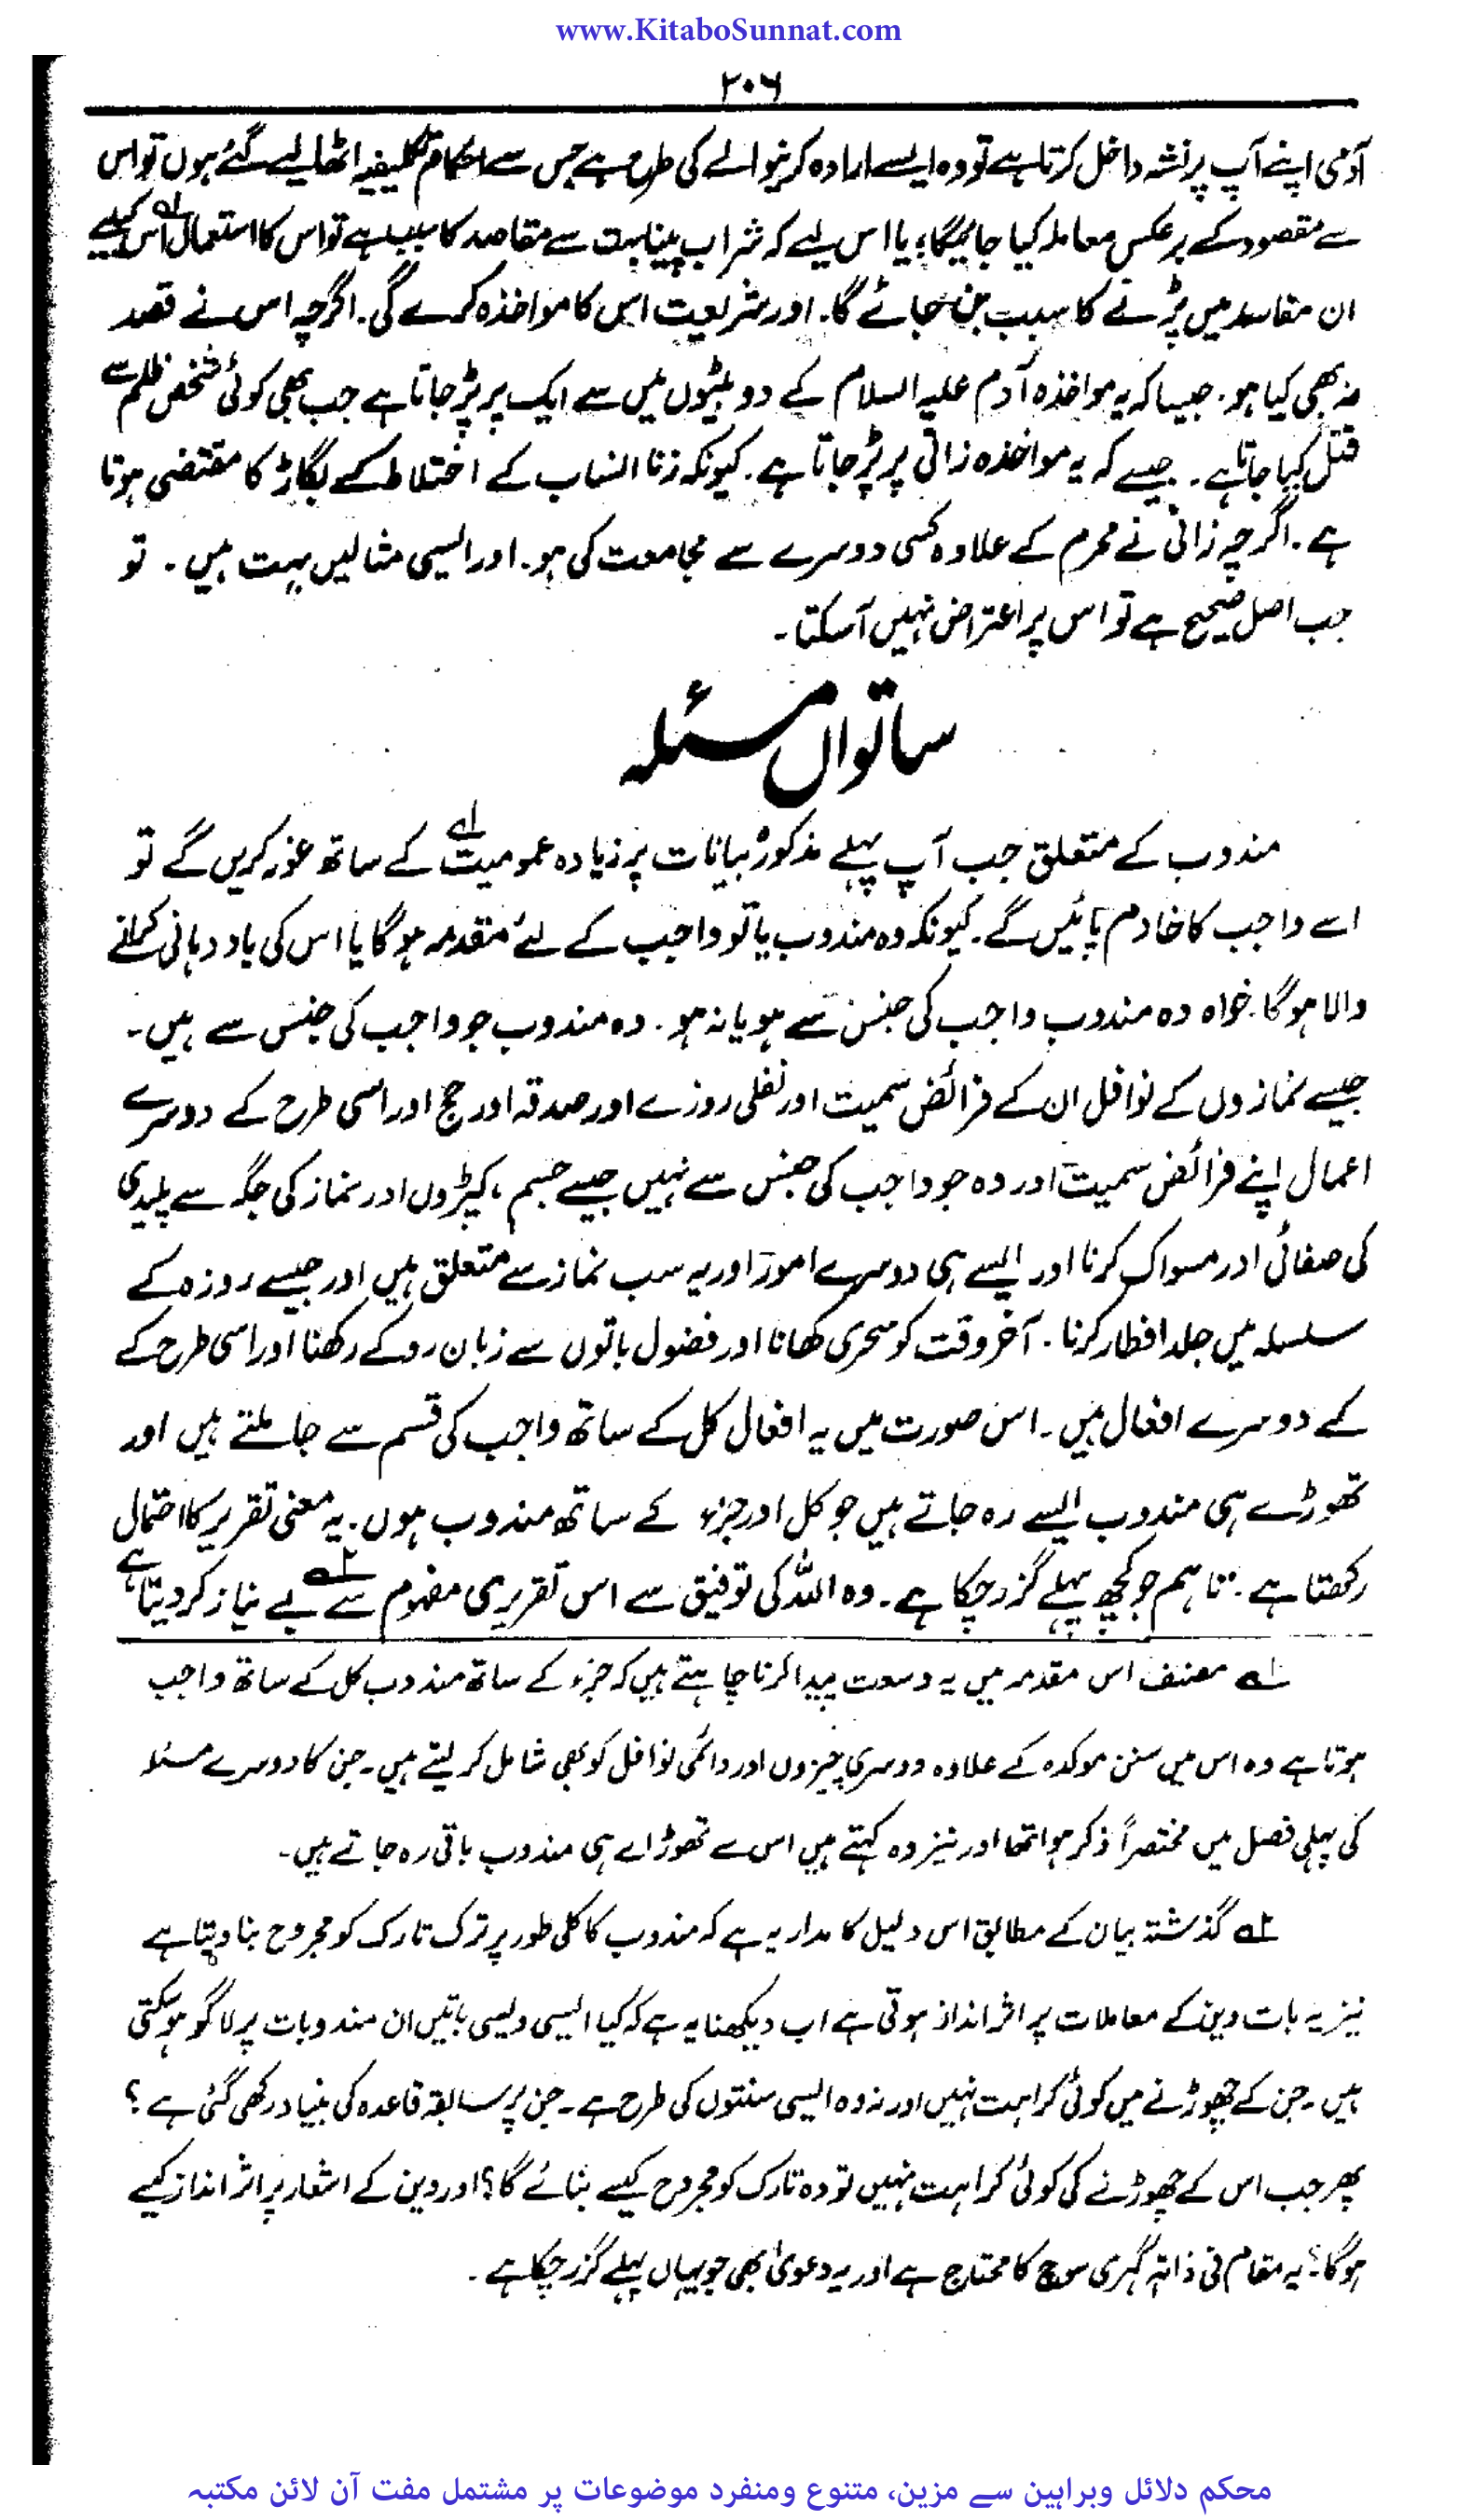 www.KitaboSunnat.com
۲۰۶
آدمی اپنے آپ پر نشہ داخل کرتا ہے تو وہ ایسے ارادہ کرنیوالے کی طرح ہے جس سے احکام تکلیفیہ اٹھا لیے گئے ہوں تو اس
سے مقصود کے برعکس معاملہ کیا جائیگا؛ یا اس لیے کہ شراب پینا بہت سے مقاصد کا سبب ہے تو اس کا استعمال اس کیلیے
ان مفاسد میں پڑنے کا سبب بن جائے گا۔ اور شریعت اس کا مواخذہ کرے گی۔ اگرچہ اس نے قصد
نہ بھی کیا ہو۔ جیسا کہ یہ مواخذہ آدم علیہ السلام کے دو بیٹوں میں سے ایک پر پڑ جاتا ہے جب بھی کوئی شخص ظلم سے
قتل کیا جاتا ہے۔ جیسے کہ یہ مواخذہ زانی پر پڑ جاتا ہے۔ کیونکہ زنا انساب کے اختلاط کے بگاڑ کا مقتضی ہوتا
ہے۔ اگرچہ زانی نے محرم کے علاوہ کسی دوسرے سے مجامعت کی ہو۔ اور ایسی مثالیں بہت ہیں۔ تو
جب اصل صحیح ہے تو اس پر اعتراض نہیں آ سکتا۔
ساتواں مسئلہ
مندوب کے متعلق جب آپ پہلے مذکورہ بیانات پر زیادہ عمومیت لے کے ساتھ غور کریں گے تو
اسے واجب کا خادم پائیں گے۔ کیونکہ وہ مندوب یا تو واجب کے لئے مقدمہ ہو گا یا اس کی یاد دہانی کرانے
والا ہو گا۔ خواہ وہ مندوب واجب کی جنس سے ہو یا نہ ہو۔ وہ مندوب جو واجب کی جنس سے ہیں۔
جیسے نمازوں کے نوافل ان کے فرائض سمیت اور نفلی روزے اور صدقہ اور حج اور اسی طرح کے دوسرے
اعمال اپنے فرائض سمیت اور وہ جو واجب کی جنس سے نہیں جیسے جسم، کپڑوں اور نماز کی جگہ سے پلیدی
کی صفائی اور مسواک کرنا اور ایسے ہی دوسرے امور اور یہ سب نماز سے متعلق ہیں اور جیسے روزہ کے
سلسلہ میں جلد افطار کرنا۔ آخر وقت کو سحری کھانا اور فضول باتوں سے زبان روکے رکھنا اور اسی طرح کے
کے دوسرے افعال ہیں۔ اس صورت میں یہ افعال کل کے ساتھ واجب کی قسم سے جا ملتے ہیں اور
تھوڑے ہی مندوب ایسے رہ جاتے ہیں جو کل اور جزء کے ساتھ مندوب ہوں۔ یہ معنی تقریر کا احتمال
رکھتا ہے۔ تاہم جو کچھ پہلے گزر چکا ہے۔ وہ اللہ کی توفیق سے اس تقریری مفہوم سے ۲ بے نیاز کر دیتا ہے
۱ مصنف اس مقدمہ میں یہ وسعت پیدا کرنا چاہتے ہیں کہ جزء کے ساتھ مندوب کل کے ساتھ واجب
ہوتا ہے وہ اس میں سنن موکدہ کے علاوہ دوسری چیزوں اور دائمی نوافل کو بھی شامل کر لیتے ہیں۔ جن کا دوسرے مسئلہ
کی پہلی فصل میں مختصراً ذکر ہوا تھا اور نیز وہ کہتے ہیں اس سے تھوڑا ے ہی مندوب باقی رہ جاتے ہیں۔
۲ گذشتہ بیان کے مطابق اس دلیل کا مدار یہ ہے کہ مندوب کا کلی طور پر ترک تارک کو مجروح بنا دیتا ہے
نیز یہ بات دین کے معاملات پر اثر انداز ہوتی ہے اب دیکھنا یہ ہے کہ کیا ایسی ویسی باتیں ان مندوبات پر لاگو ہو سکتی
ہیں۔ جن کے چھوڑنے میں کوئی کراہت نہیں اور نہ وہ ایسی سنتوں کی طرح ہے۔ جن پر سابقہ قاعدہ کی بنیاد رکھی گئی ہے؟
پھر جب اس کے چھوڑنے کی کوئی کراہت نہیں تو وہ تارک کو مجروح کیسے بنائے گا؟ اور دین کے اشعار پر اثر انداز کیسے
ہو گا؟ یہ مقام فی ذاتہ گہری سوچ کا محتاج ہے اور یہ دعویٰ بھی جو یہاں پہلے گزر چکا ہے۔
محکم دلائل وبراہین سے مزین، متنوع ومنفرد موضوعات پر مشتمل مفت آن لائن مکتبہ